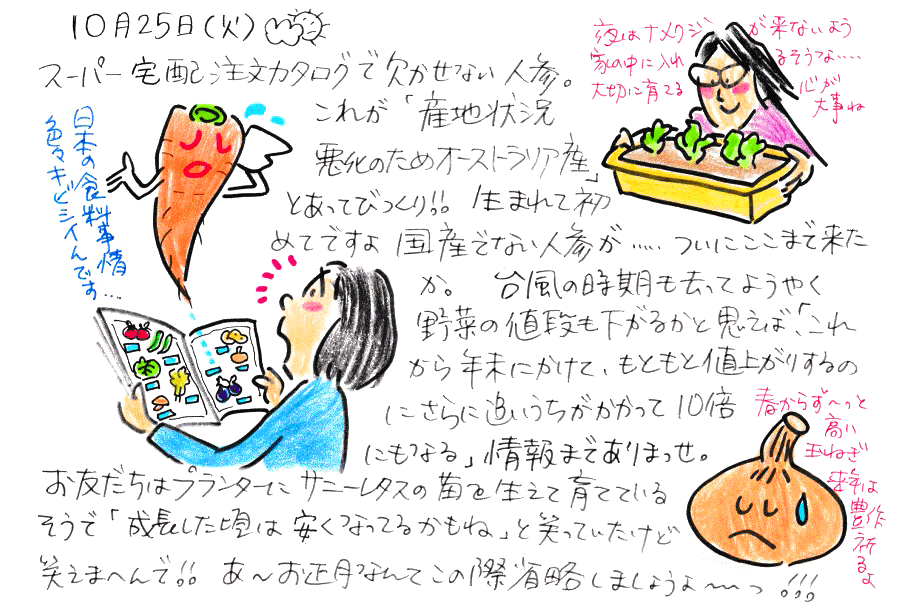 10月25日(火)
スーパー宅配注文カタログで欠かせない人参。
これが「産地状況
悪化のためオーストラリア産」
とあってびっくり!! 生まれて初
めてですよ 国産でない人参が‥‥‥ ついにここまで来た
か。 台風の時期も去ってようやく
野菜の値段も下がるかと思えば「これ
から年末にかけて、もともと値上がりするの
にさらに追いうちがかかって10倍
にもなる」情報まであまっせ。
お友だちはプランターにサニーレタスの苗を生えて育てている
そうで「成長した頃は安くなってるかもね」と笑っていたけど
笑えまへんで!! あ〜お正月なんてこの際省略しましょうよ〜〜っ!!!
日本の食料事情
色々キビシイんです…
夜はナメクジが来ないよう
家の中に入れるそうな‥‥
大切に育てる心が
大事ね
春からず〜っと
高い
玉ねぎ
来年は
豊作
祈るよ